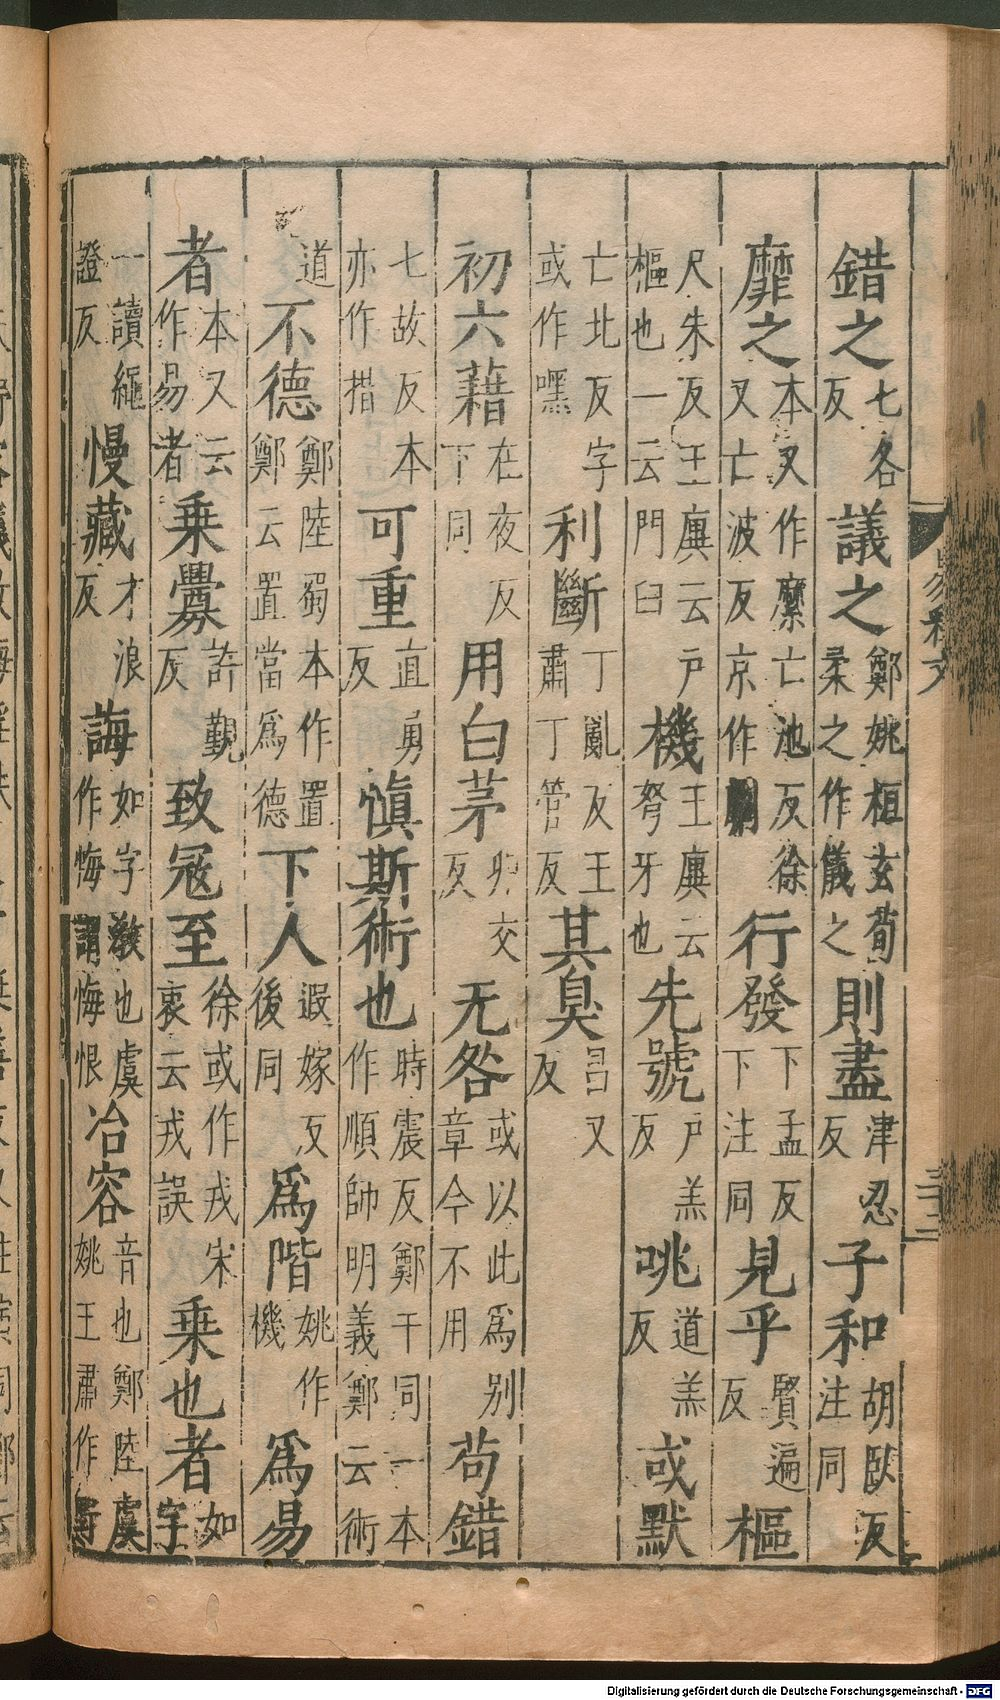 錯之七各反議之鄭姚桓玄荀柔之作儀之則盡津忍反子和胡臥反注同
靡之本又作縻亡池反徐又亡波反京作行發下孟反下注同見乎賢遍反樞
尺朱反王廙云戶樞也一云門臼機王廙云弩牙也先號戶羔反咷道羔反或默
亡北反字或作嘿利斷丁亂反王肅丁管反其臭昌又反
初六藉在夜反下同用白茅卯交反无咎或以此爲別章今不用苟錯
七故反本亦作措可重直勇反愼斯術也時震反鄭干同一本作順師明義鄭云術
道不德鄭陸蜀本作置鄭云置當爲德下人遐嫁反後同爲階姚作機爲易
者本又云作易者乘釁許覲反致冦至徐或作戎宋衷云戎誤乘也者如字
一讀繩證反慢藏才浪反誨如字敎也虞作悔謂悔恨冶容音也鄭陸虞姚王肅作野
Digitalisierung gefördert durch die Deutsche Forschungsgemeinschaft - DFG